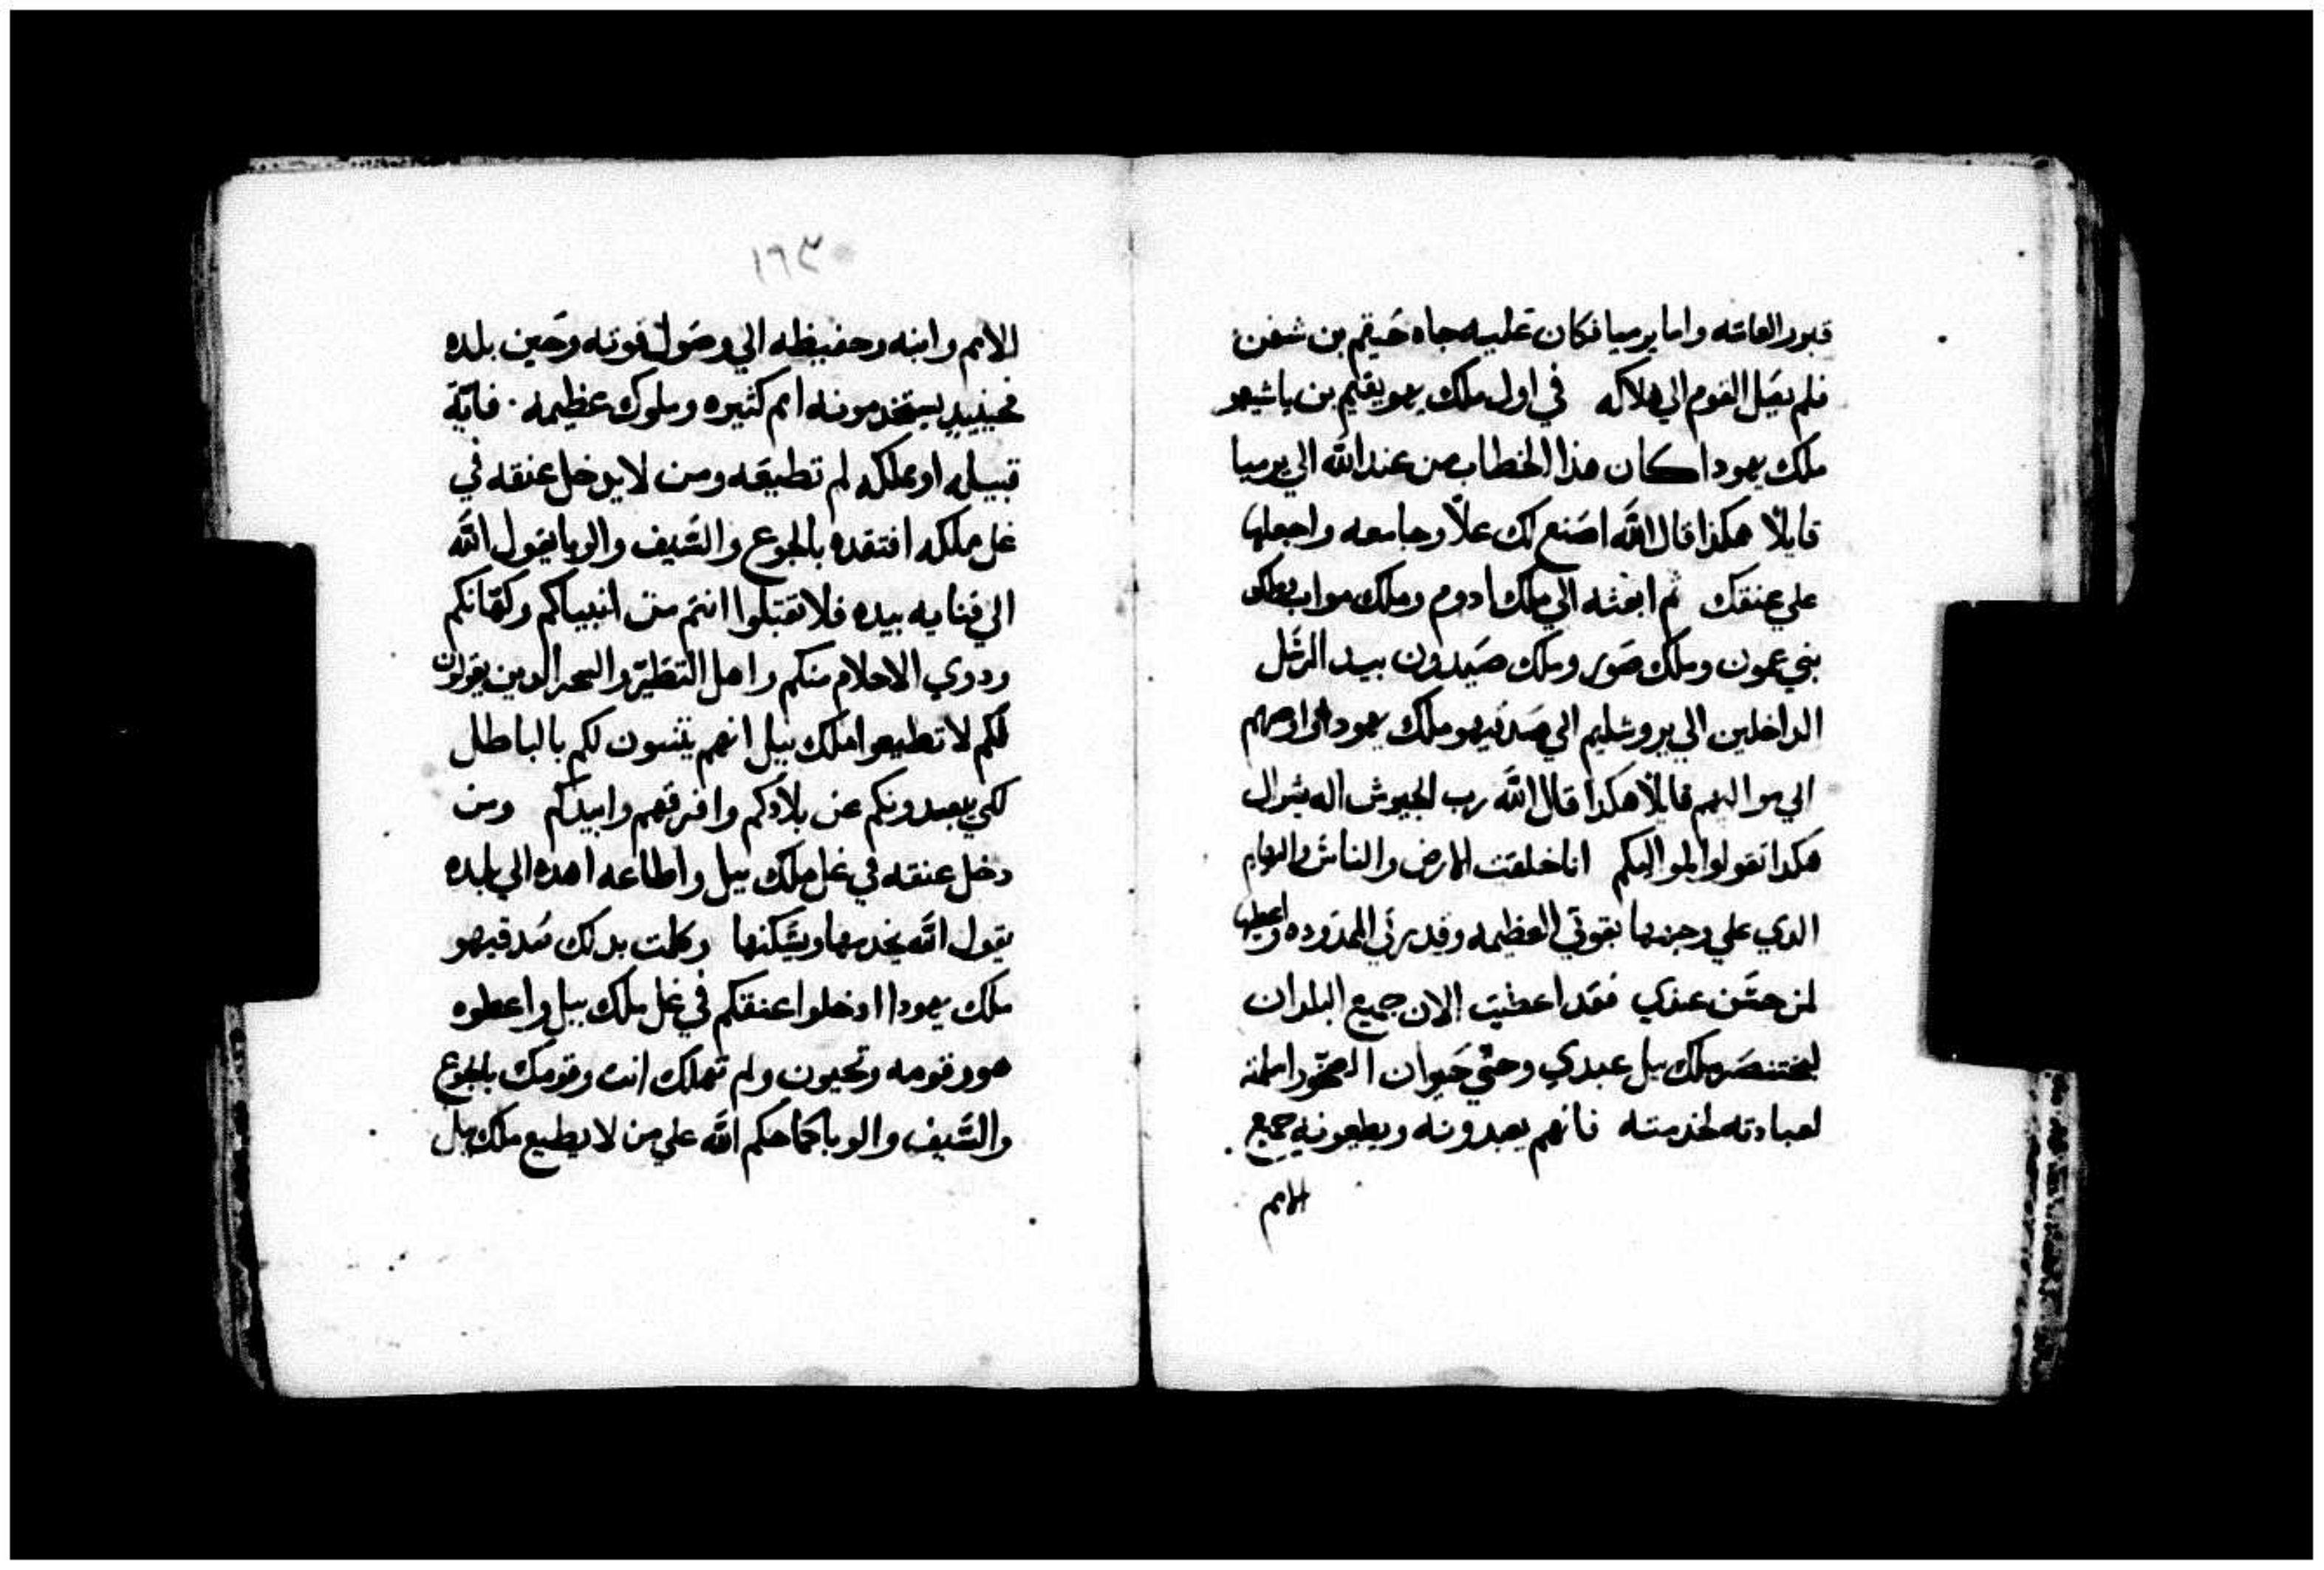 قبور العامه واما يرميا فكان عليه جاه حيقم بن شفن
فلم يصل القوم الي هلاكه في اول ملك يهويقيم بن ياشيهو
ملك يهودا كان هذا الخطاب من عند الله الي يرميا
قايلا هكذا قال الله اصنع لك غلا وجامعه واجعلها
علي عنقك ثم ابعثه الي ملك ادوم وملك مواب وملك
بني عمون وملك صور وملك صيدون بيد الرسل
الداخلين الي يروشليم الي صدقيهو ملك يهودا واوصهم
الي مواليهم قايلا هكدا قال الله رب الجيوش اله يسرال
هكدا تقولوا لمواليكم انا خلقت الارض والناس والبهايم
الدي علي وجهها بقوتي العظيمه وقدرتي الممدوده واعطيها
لمن حسن عندي فقد اعطيت الان جميع البلدان
لبختنصر ملك ببل عبدي وحتي حيوان الصحرا
لعبادته لخدمته فانهم يعبدونه ويطيعونه جميع
الامم
١٦٣
الامم وابنه وحفيظه الي وصول فوته وحين بلده
فحينيد يستخدمونه امم كثيره وملوك عظيمه . فاية
قبيله او مملكه لم تطيعه ومن لا يدخل عنقه في
غل ملكه افتقده بالجوع والسيف والوبا يقول الله
الي فنايه بيده فلا تقبلوا انتم من انبياكم وكهانكم
ودوي الاحلام منكم واهل التطير والسحر الدين يقولون
لكم لا تطيعوا ملك ببل انهم يتنبون لكم بالباطل
لكي يبعدونكم عن بلادكم وافرقهم وابيدكم ومن
دخل عنقه في غل ملك ببل واطاعه اهده الي بلده
يقول الله يخدمها ويسكنها وكلمت بدلك صدقيهو
ملك يهودا ادخلوا عنقكم في غل ملك ببل واعطوه
هو وقومه وتحيون ولم تهلك انت وقومك بالجوع
والسيف والوبا كما حكم الله علي من لا يطيع ملك ببل